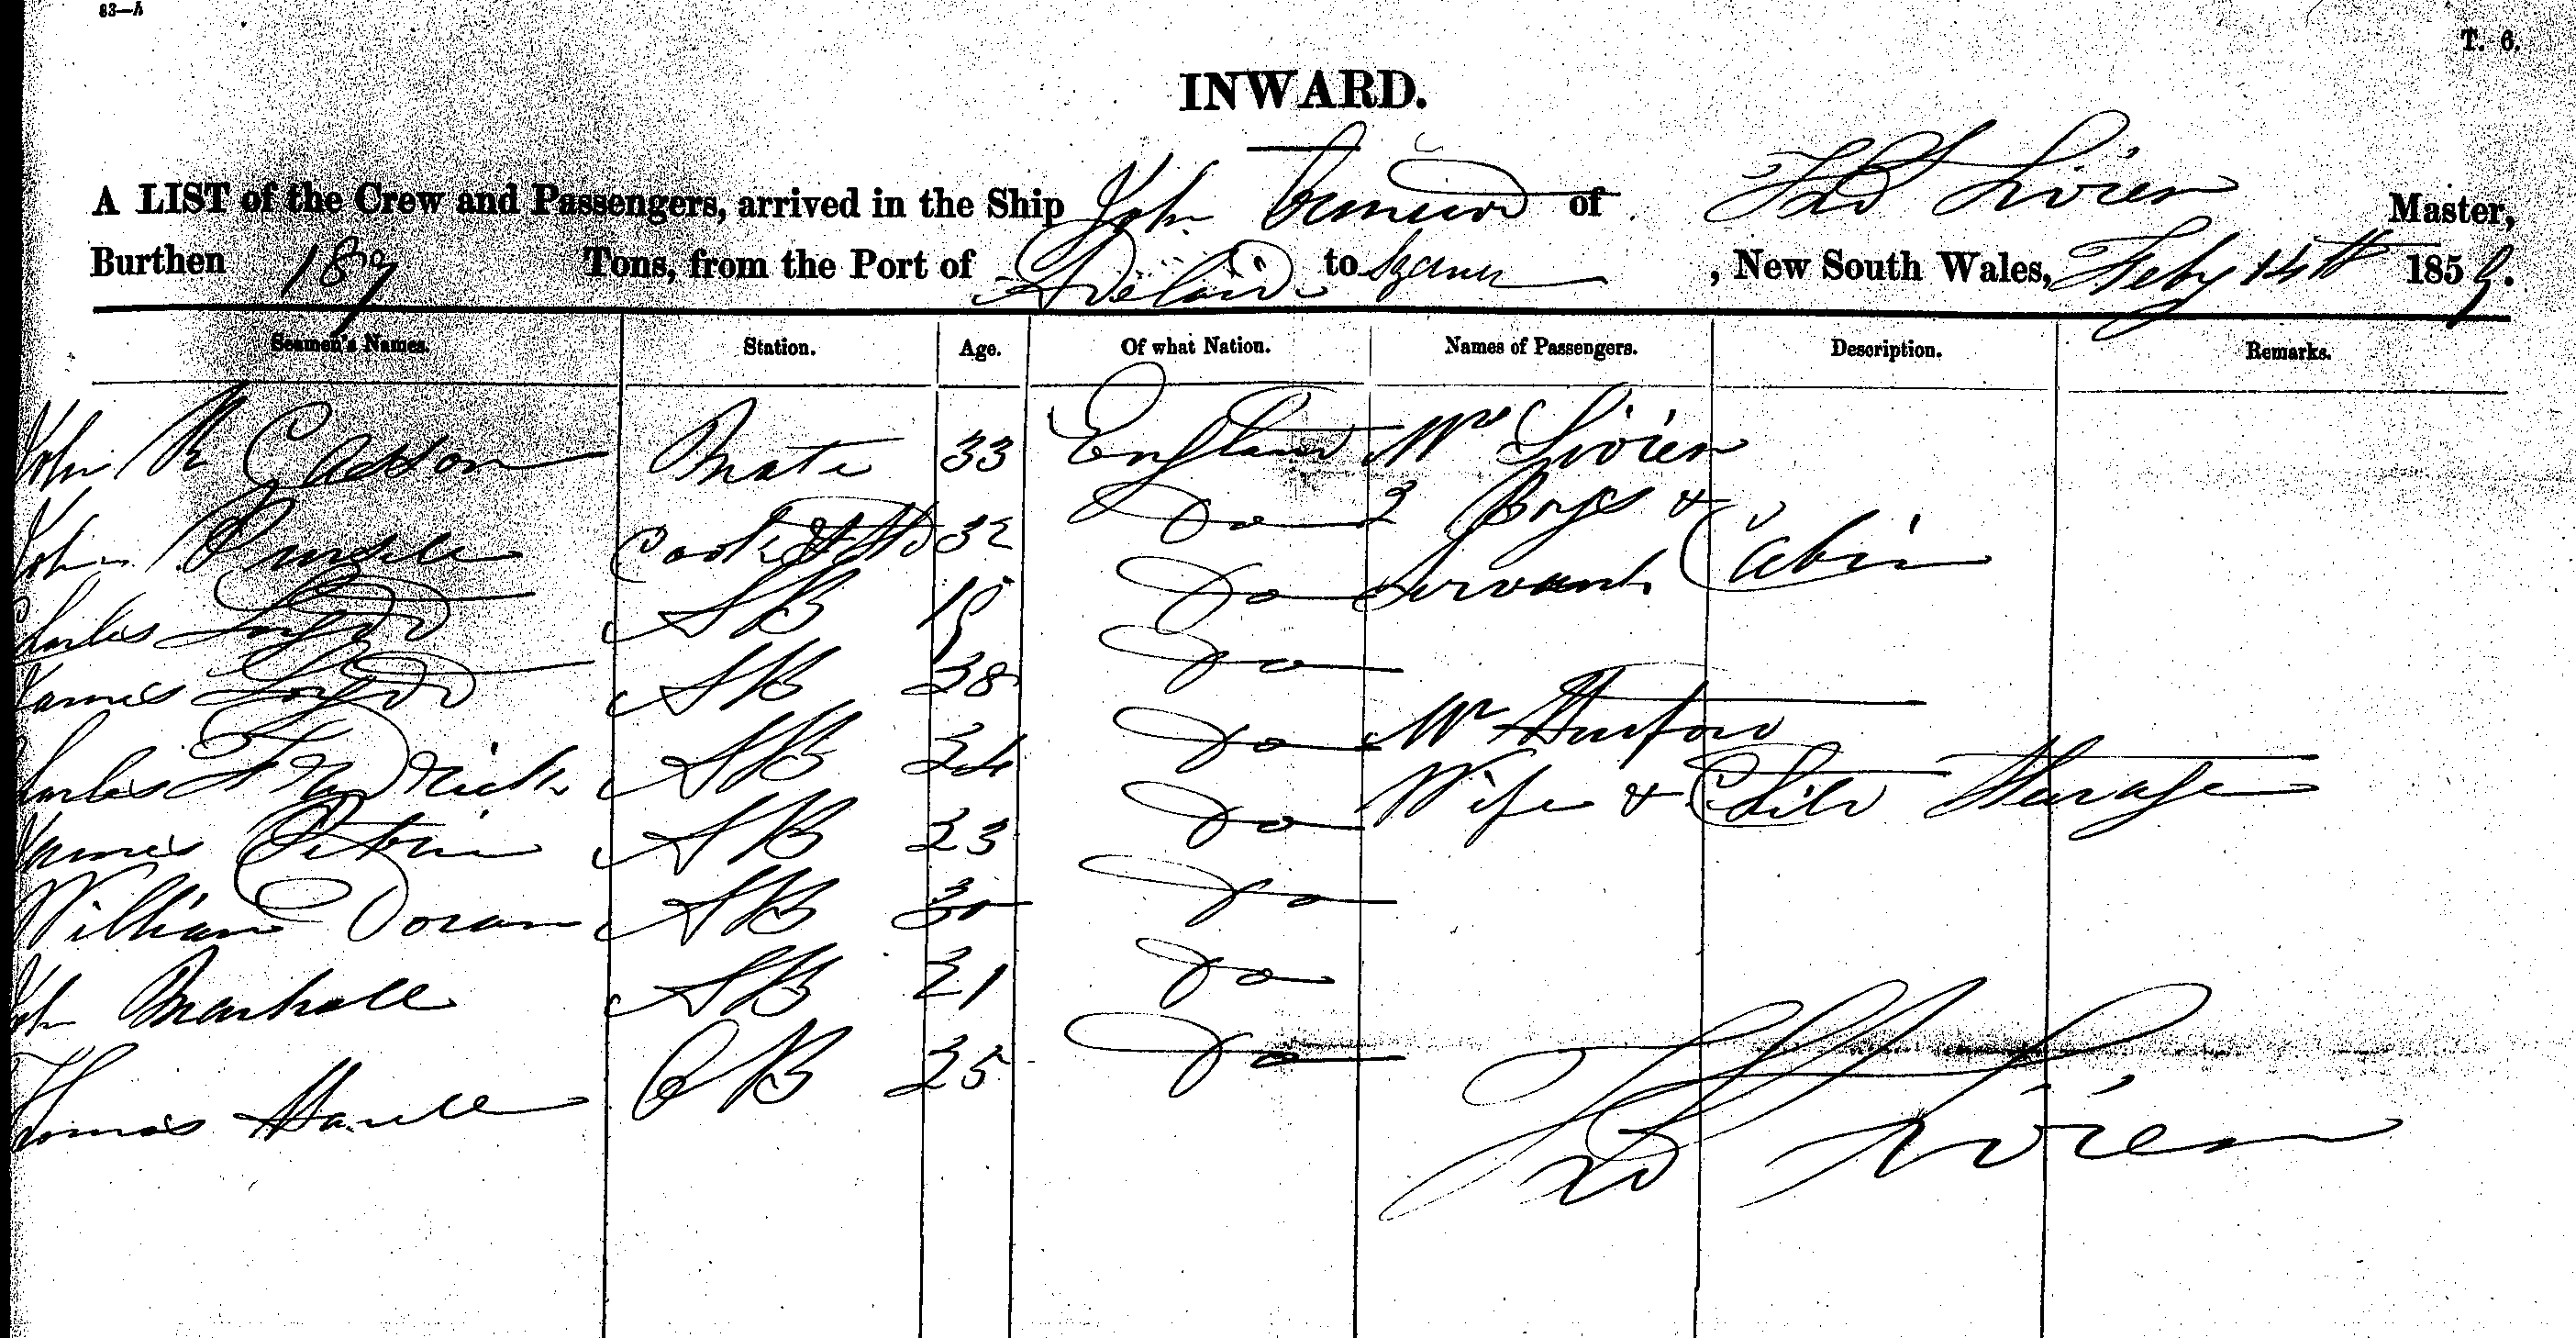 83—A
T. 6.
INWARD.
A LIST of the Crew and Passengers, arrived in the Ship John of Livien Master,
Burthen 189 Tons, from the Port of Adelaide to , New South Wales, Feby 14th 1859.
Seamen's Names. Station. Age. Of what Nation. Names of Passengers. Description. Remarks.
John R Casson Mate 33 England Mrs Livien
John Cook & Std 32 Do 2 Boys &
Charles Loydd AB 19 Do Servant Cabin
James Loydd AB 38 Do
Charles Fredrick AB 24 Do Mr
James AB 23 Do Wife & Child Steerage
William Doran AB 30 Do
John Marshall AB 21 Do
Thomas OB 25 Do
Livien